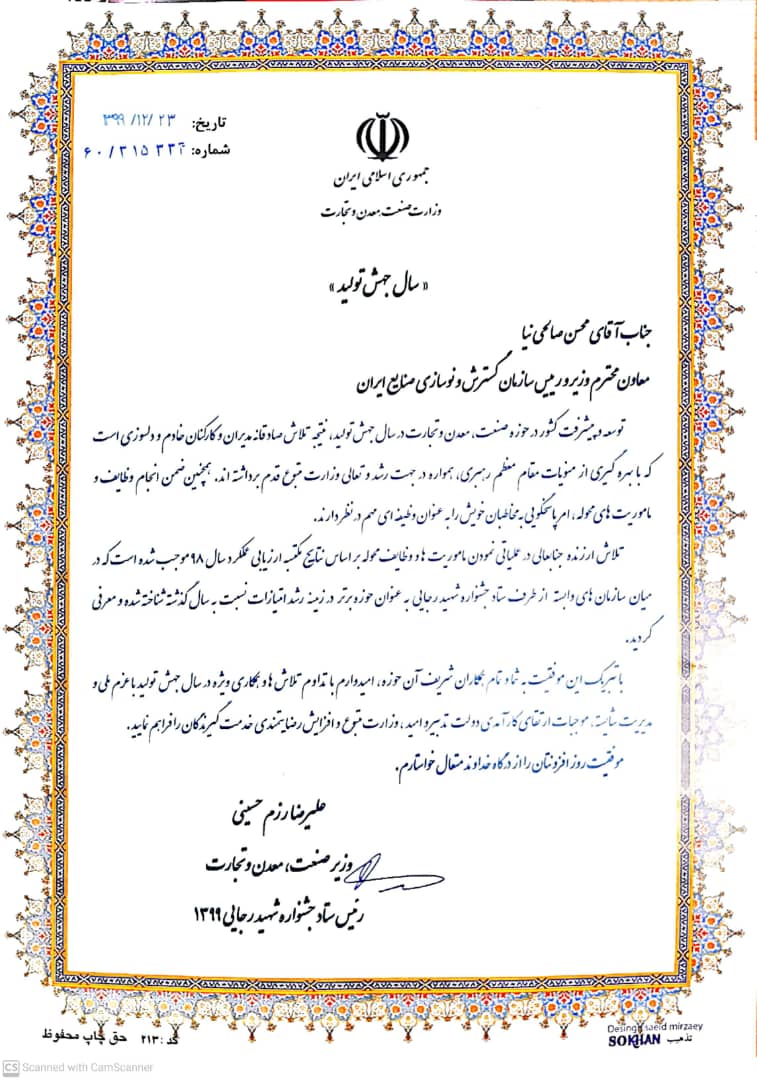 تاریخ: ۳۹۹/۱۲/۲۳
شماره: ۶۰/۳۱۵۳۳۴
جمهوری اسلامی ایران
وزارت صنعت، معدن و تجارت
« سال جهش تولید »
جناب آقای محسن صالحی نیا
معاون محترم وزیر و رییس سازمان گسترش و نوسازی صنایع ایران
توسعه و پیشرفت کشور در حوزه صنعت، معدن و تجارت در سال جهش تولید، نتیجه تلاش صادقانه مدیران و کارکنان خادم و دلسوزی است
که با بهره گیری از منویات مقام معظم رهبری، همواره در جهت رشد و تعالی وزارت متبوع قدم برداشته اند. همچنین ضمن انجام وظایف و
ماموریت های محوله، امر پاسخگویی به مخاطبان خویش را به عنوان وظیفه ای مهم در نظر دارند.
تلاش ارزنده جنابعالی در عملیاتی نمودن ماموریت ها و وظایف محوله بر اساس نتایج مکتسبه ارزیابی عملکرد سال ۹۸ موجب شده است که در
میان سازمان های وابسته از طرف ستاد جشنواره شهید رجایی به عنوان حوزه برتر در زمینه رشد امتیازات نسبت به سال گذشته شناخته شده و معرفی
گردید.
با تبریک این موفقیت به شما و تمام همکاران شریف آن حوزه، امیدوارم با تداوم تلاش ها و همکاری ویژه در سال جهش تولید با عزم ملی و
مدیریت شایسته، موجبات ارتقای کارآمدی دولت تدبیر و امید، وزارت متبوع و افزایش رضایتمندی خدمت گیرندگان را فراهم نمایید.
موفقیت روز افزونتان را از درگاه خداوند متعال خواستارم.
علیرضا رزم حسینی
وزیر صنعت، معدن و تجارت
رئیس ستاد جشنواره شهید رجایی ۱۳۹۹
کد: ۲۱۳ حق چاپ محفوظ
Desing: saeid mirzaey
تذهیب SOKHAN
CS Scanned with CamScanner